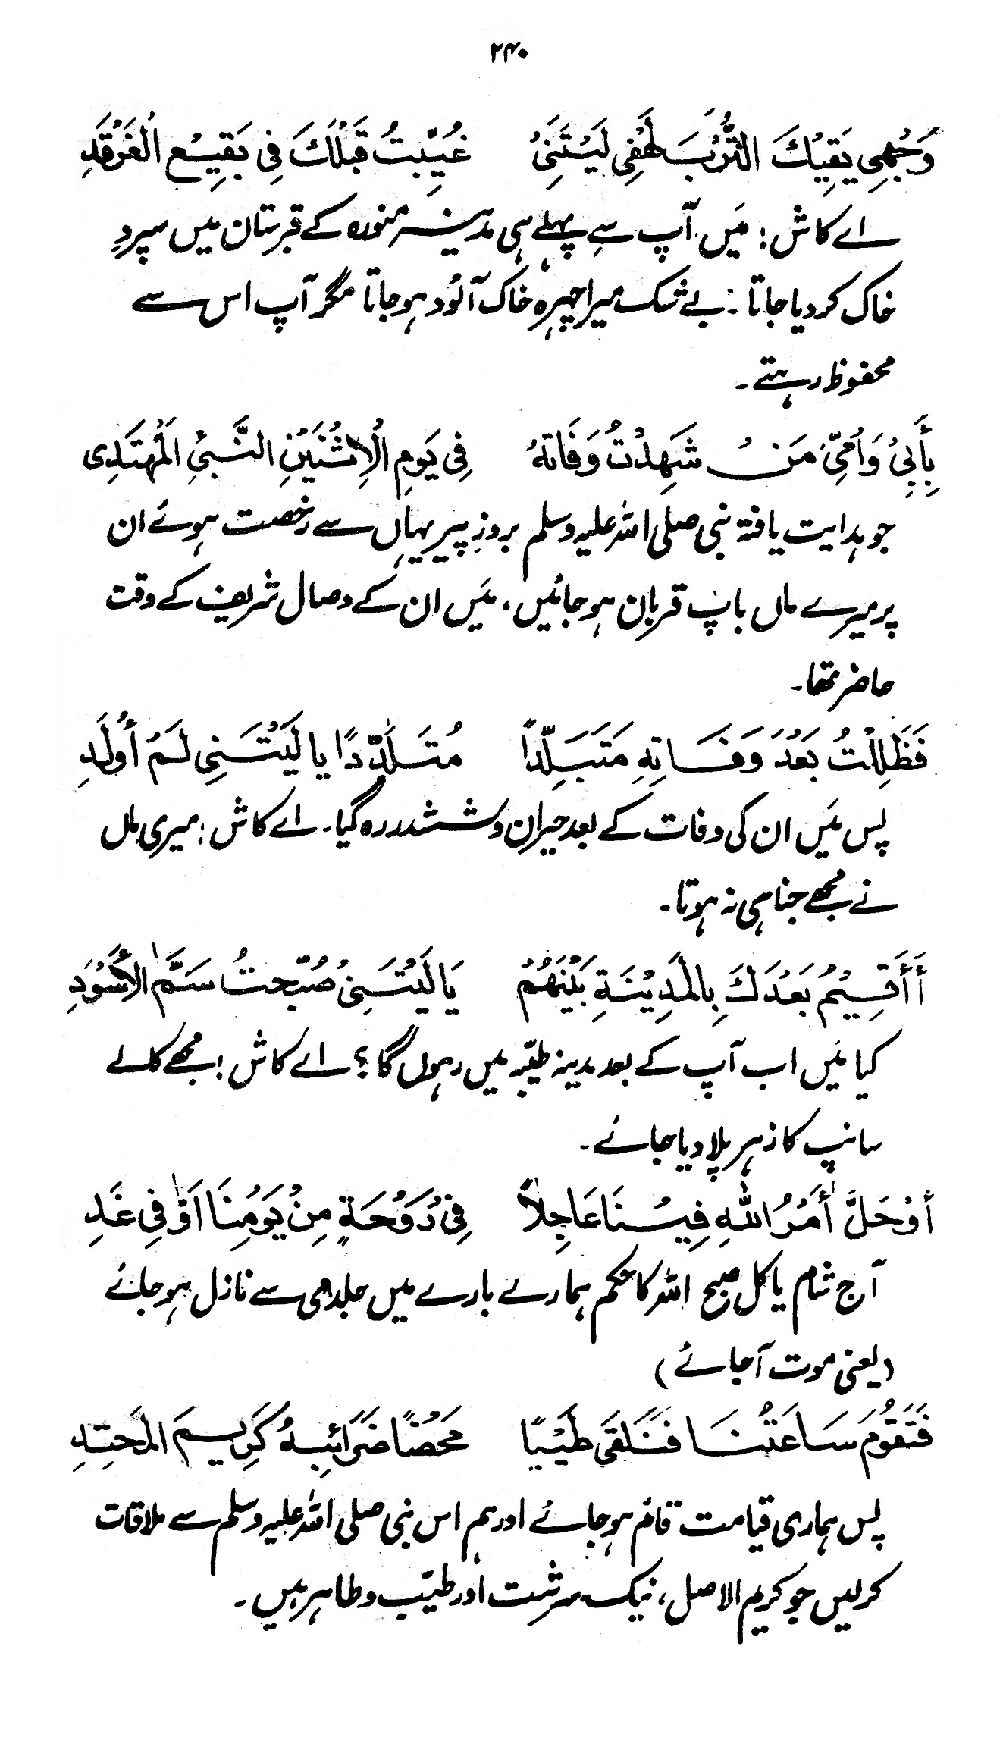 ۲۴۰
وَجْهِي يَقِيْكَ التُّرْبَ لَهْفِي لَيْتَنِيْ غُيِّبْتُ قَبْلَكَ فِي بَقِيْعِ الْغَرْقَدِ
اے کاش! میں آپ سے پہلے ہی مدینہ منورہ کے قبرستان میں سپردِ
خاک کر دیا جاتا۔ بے شک میرا چہرہ خاک آلود ہو جاتا مگر آپ اس سے
محفوظ رہتے۔
بِأَبِيْ وَاُمِّيَ مَنْ شَهِدْتُ وَفَاتَهُ فِي يَوْمِ الْاِثْنَيْنِ النَّبِيُّ الْمُهْتَدِى
جو ہدایت یافتہ نبی صلی اللہ علیہ وسلم بروزِ پیر یہاں سے رخصت ہوئے ان
پر میرے ماں باپ قربان ہو جائیں، میں ان کے وصال شریف کے وقت
حاضر تھا۔
فَظَلِلْتُ بَعْدَ وَفَاتِهِ مَتَبَلِّدًا مُتَلَدِّدًا يا لَيْتَنِي لَمْ أُولَدِ
پس میں ان کی وفات کے بعد حیران و ششدر رہ گیا۔ اے کاش! میری ماں
نے مجھے جنا ہی نہ ہوتا۔
أَأَقِيْمُ بَعْدَكَ بِالْمَدِيْنَةِ بَيْنَهُمْ يَا لَيْتَنِيْ صُبِّحْتُ سَمَّ الْأَسْوَدِ
کیا میں اب آپ کے بعد مدینہ طیّبہ میں رہوں گا؟ اے کاش! مجھے کالے
سانپ کا زہر پلا دیا جائے۔
أَوْ حَلَّ أَمْرُ اللهِ فِيْنَا عَاجِلاً فِيْ دَوْحَةٍ مِنْ يَوْمِنَا اَوْ فِي غَدِ
آج شام یا کل صبح اللہ کا حکم ہمارے بارے میں جلدی سے نازل ہو جائے
(یعنی موت آ جائے)
فَتَقُوْمَ سَاعَتُنَا فَنَلْقَى طَيِّبًا مَحْضًا ضَرَائِبُهُ كَرِيمَ الْمَحْتِدِ
پس ہماری قیامت قائم ہو جائے اور ہم اس نبی صلی اللہ علیہ وسلم سے ملاقات
کر لیں جو کریم الاصل، نیک سرشت اور طیّب و طاہر ہیں۔